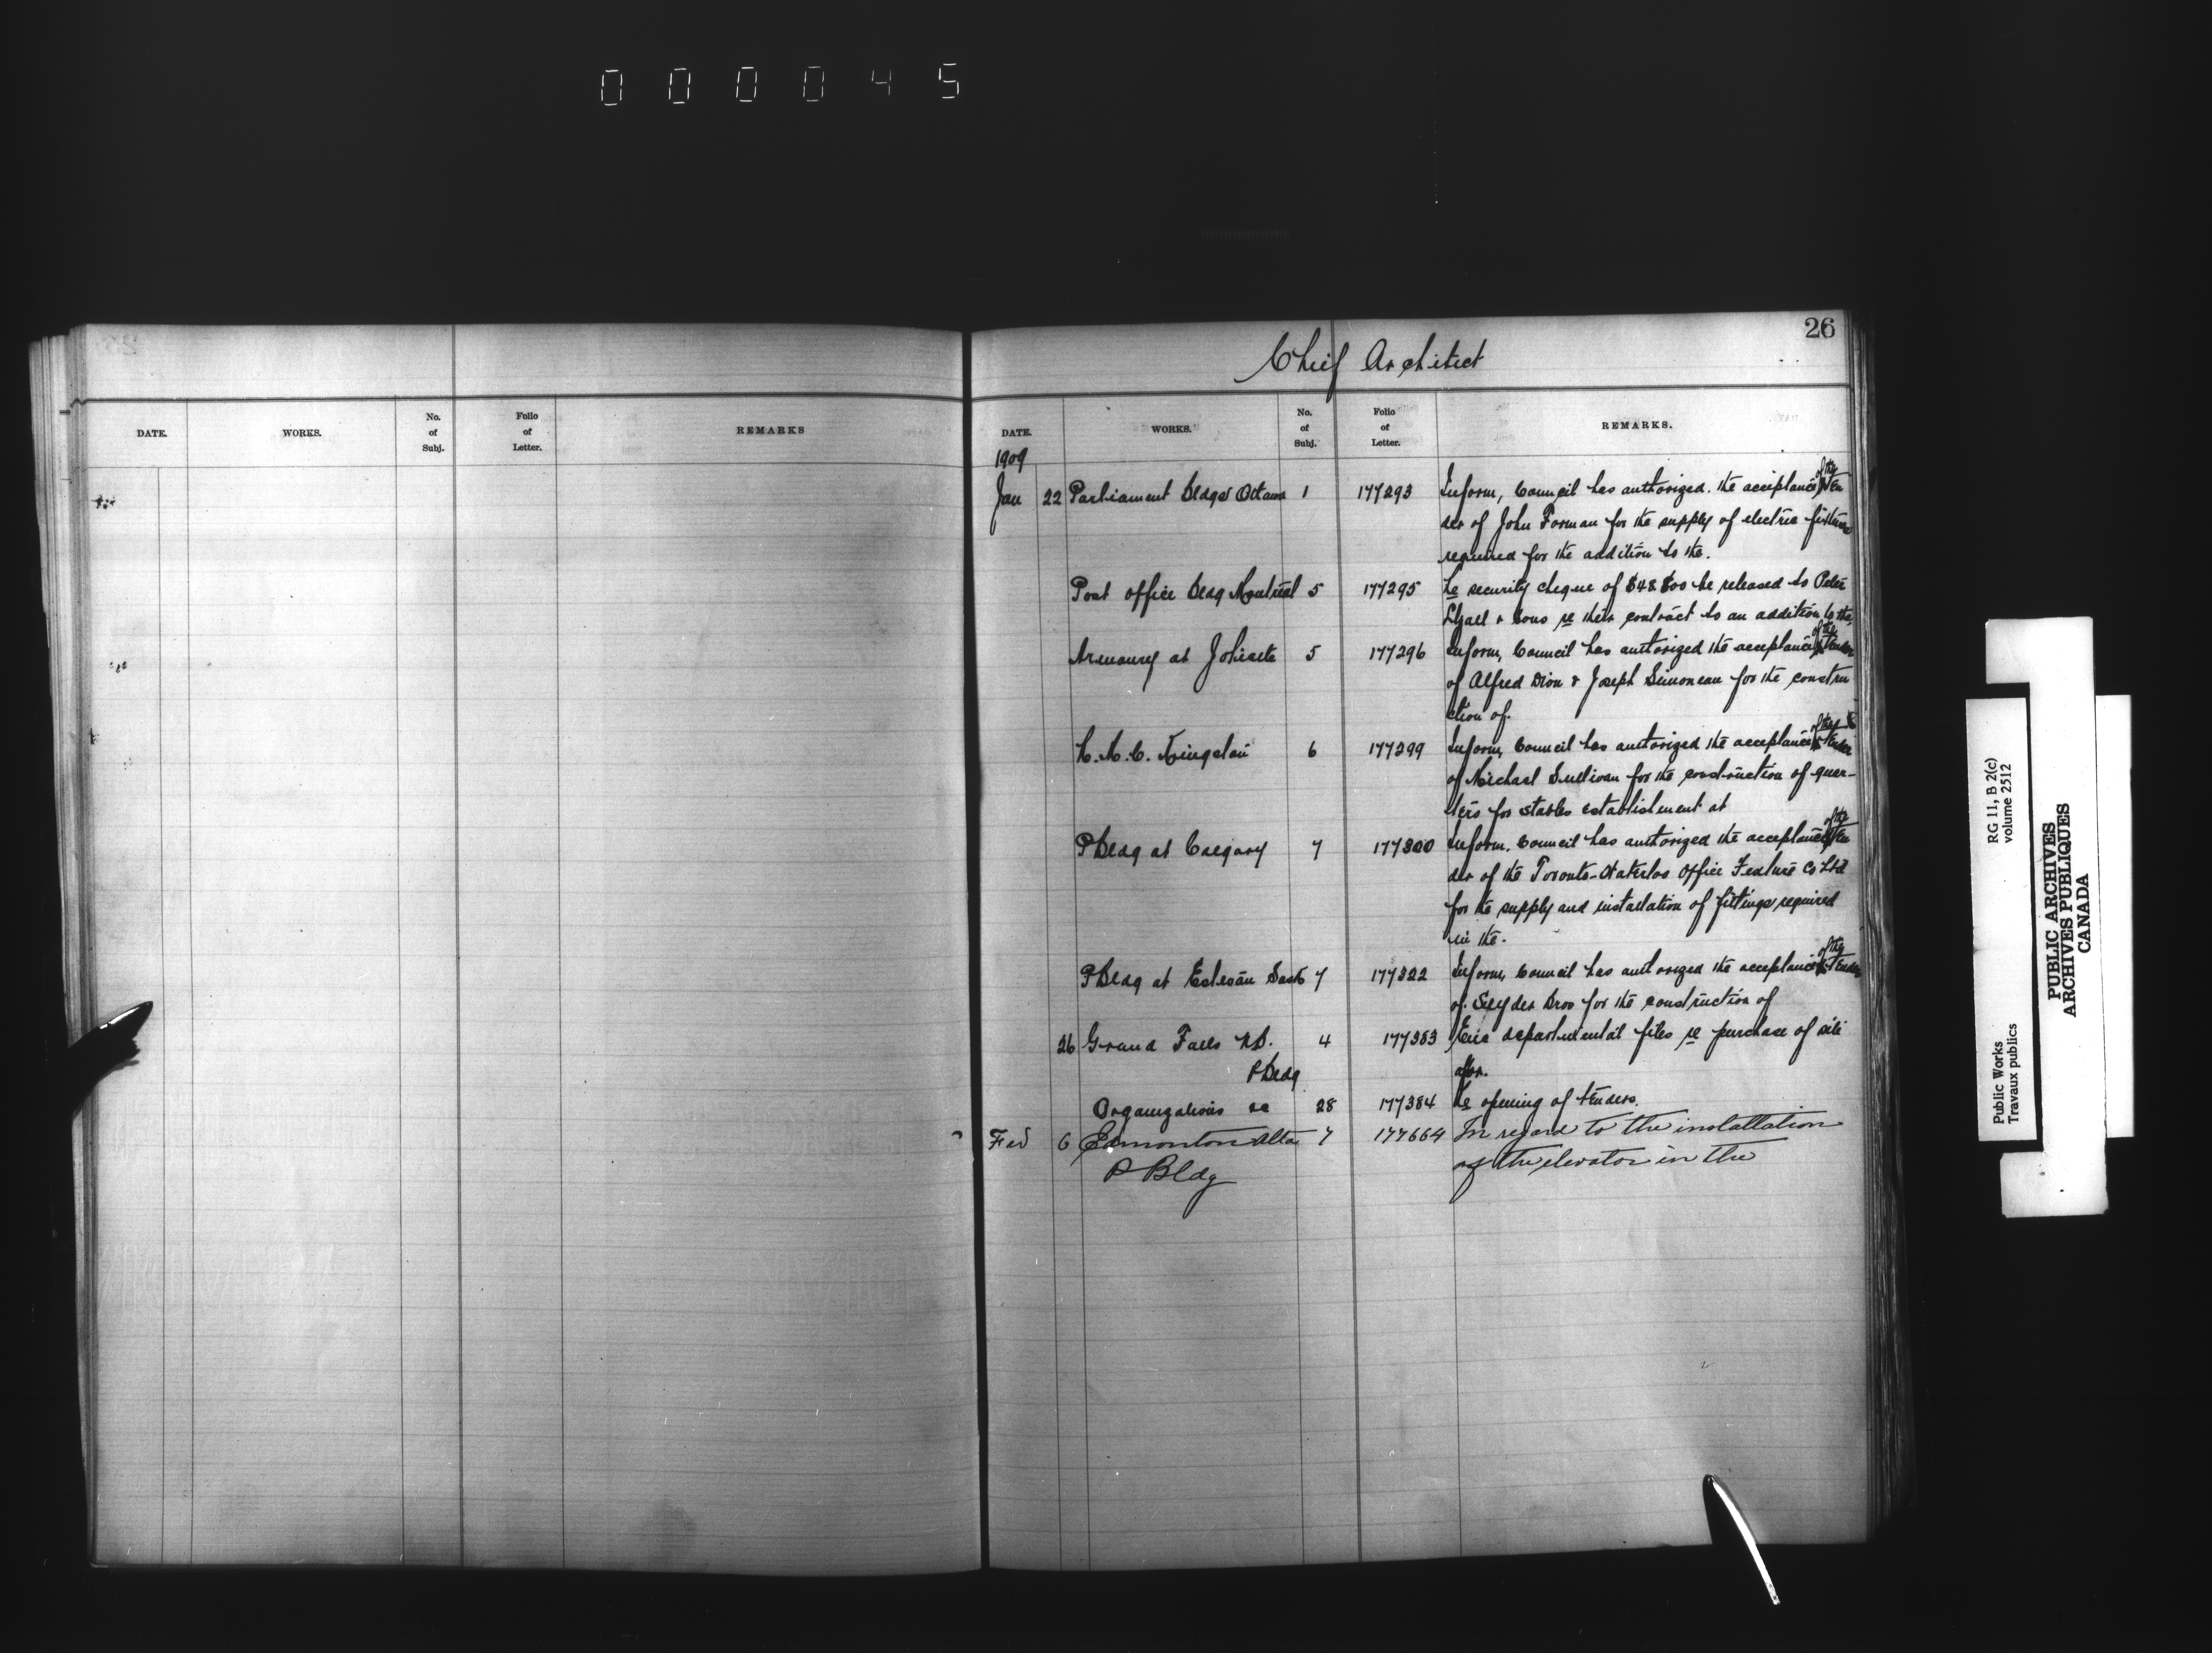 000045
26
Chief Architect
DATE. WORKS. No. of Subj. Folio of Letter. REMARKS
DATE. WORKS. No. of Subj. Folio of Letter. REMARKS.
1909
Jan 22 Parliament Bldgs Ottawa 1 177293 Inform, Council has authorized the acceptance of the ten
der of John Forman for the supply of electric fixtures
required for the addition to the.
Post office Bldg Montreal 5 177295 Re security cheque of be released to Peter
Lyall & Sons re their contract to an addition to the,
Armoury at Joliette 5 177296 Inform, Council has authorized the acceptance of the tender
of Alfred Dion & Joseph Simoneau for the constru
ction of.
R.M.C. Kingston 6 177299 Inform, Council has authorized the acceptance of the tender
of Michael Sullivan for the construction of quar-
ters for stables establishment at
P Bldg at Calgary 7 177300 Inform, Council has authorized the acceptance of the ten
der of the Toronto-Waterloo Office Co Ltd
for the supply and installation of fittings required
in the.
P Bldg at Estevan Sask 7 177322 Inform, Council has authorized the acceptance of the tender
of Snyder Bros for the construction of
26 Grand Falls N.B. 4 177383 Enc departmental files re purchase of site
P Bldg for.
Organizations re 28 177384 Re opening of tenders.
Feb 6 Edmonton Alta 7 177664 In regard to the installation
P Bldg of the elevator in the
Public Works RG 11, B 2(c)
Travaux publics volume 2512
PUBLIC ARCHIVES
ARCHIVES PUBLIQUES
CANADA